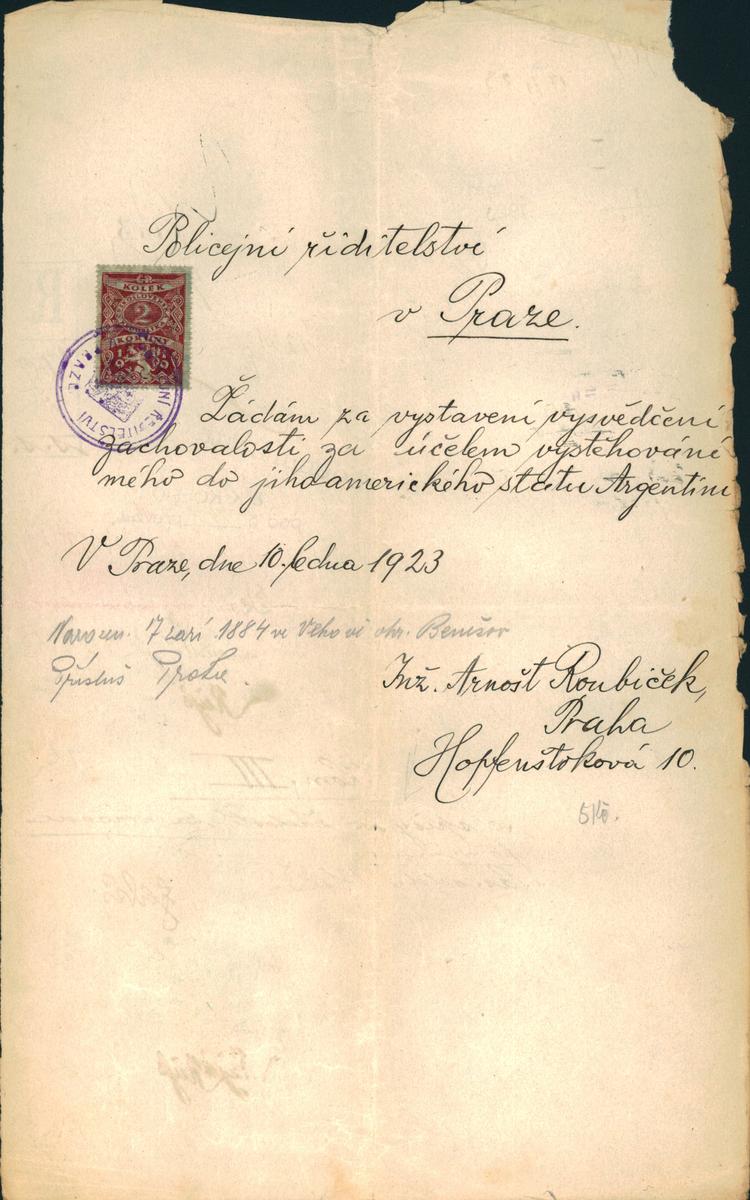 Policejní řiditelství
v Praze.
ČR
KOLEK
ČESKOSLOVENSKÁ
2
KORUNY
1919
Žádám za vystavení vysvědčení
zachovalosti za účelem vystěhování
mého do jihoamerického státu Argentini
V Praze, dne 10. ledna 1923
Narozen. 17 září 1884 ve okr. Benešov
Přísluš Praha.
Inž. Arnošt Roubíček,
Praha
Hopfenštoková 10.
5 Kč.
III